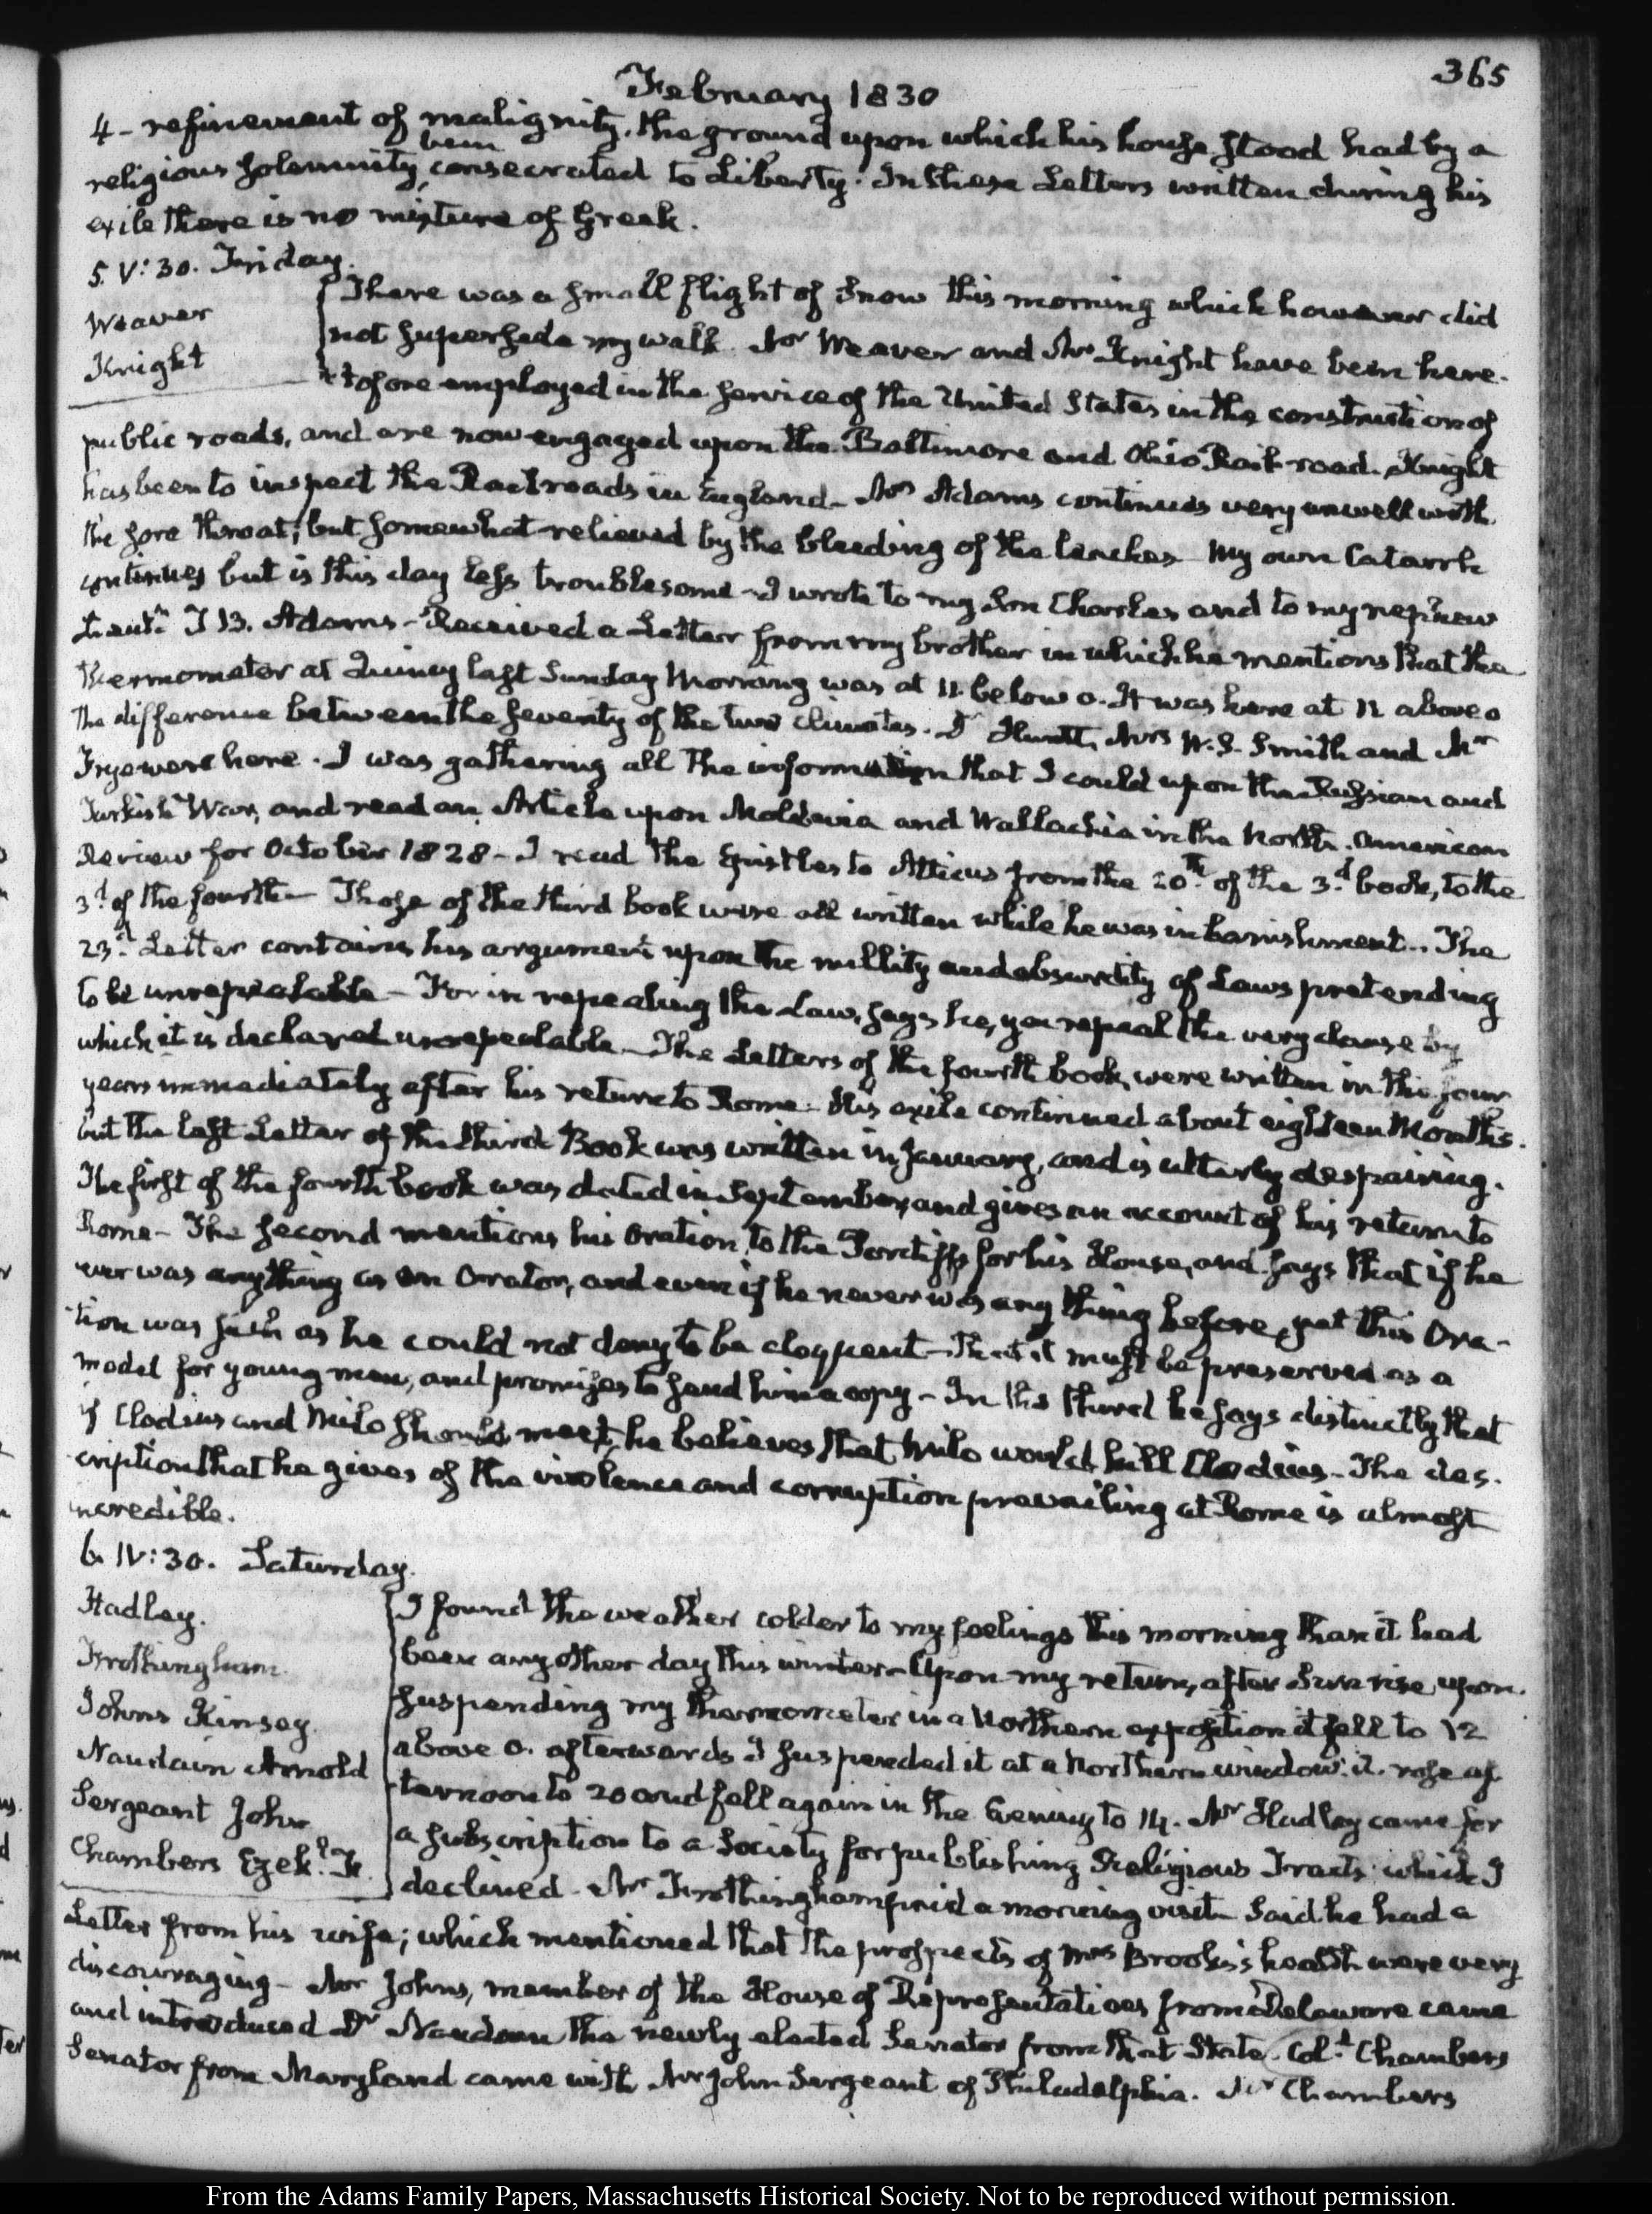 365
February 1830
4 - refinement of malignity, the ground upon which his house stood had by a
been
religious solemnity consecrated to Liberty. In these Letters written during his
exile there is no mixture of Greek.
5. V:30. Friday.
Weaver
Knight
There was a small flight of Snow this morning which however did
not supersede my walk. Mr Weaver and Mr Knight have been here.
tofore employed in the service of the United States in the construction of
public roads, and are now engaged upon the Baltimore and Ohio Rail-road. Knight
has been to inspect the Railroads in England - Mrs Adams continues very unwell with
the sore throat; but somewhat relieved by the bleeding of the leeches - My own Catarrh
continues but is this day less troublesome - I wrote to my Son Charles and to my nephew
Lieutt. T B. Adams - Received a Letter from my brother in which he mentions that the
Thermometer at Quincy last Sunday Morning was at 11 below 0. It was here at 11 above 0
The difference between the severity of the two climates. Dr Huntt, Mrs W. S. Smith and Mr
Frye were here. I was gathering all the information that I could upon the Russian and
Turkish War, and read an Article upon Moldavia and Wallachia in the North American
Review for October 1828 - I read the Epistles to Atticus from the 20th. of the 3d. book, to the
3d. of the fourth - Those of the third book were all written while he was in banishment.. The
23d. Letter contains his argument upon the nullity and absurdity of Laws pretending
to be unrepealable - For in repealing the Law, says he, you repeal the very clause by
which it is declared unrepealable - The Letters of the fourth book, were written in the four
years immediately after his return to Rome. His exile continued about eighteen Months.
but the last Letter of the third Book was written in January, and is utterly despairing.
The first of the fourth book was dated in September, and gives an account of his return to
Rome - The second mentions his Oration, to the Pontiffs for his House, and says that if he
ever was any thing as an Orator, and even if he never was any thing before, yet this Ora-
tion was such as he could not deny to be eloquent - That it must be preserved as a
model for young men, and promises to send him a copy - In the third he says distinctly that
if Clodius and Milo should meet, he believes that Milo would kill Clodius - The des-
cription that he gives of the violence and corruption prevailing at Rome is almost
incredible.
6. IV:30. Saturday.
Hadley.
Frothingham.
Johns Kinsey.
Naudain Arnold
Sergeant John
Chambers Ezek.l F.
I found the weather colder to my feelings this morning than it had
been any other day this winter - Upon my return, after Sun rise, upon
suspending my thermometer in a Northern exposition it fell to 12
above 0. afterwards I suspended it at a Northern window. it rose af-
ternoon to 20 and fell again in the Evening to 14. Mr Hadley came for
a subscription to a Society for publishing Religious Tracts which I
declined - Mr Frothingham paid a morning visit - Said he had a
Letter from his wife; which mentioned that the prospects of Mrs Brooks's health were very
discouraging - Mr Johns, member of the House of Representatives from Delaware came
and introduced Dr Naudain the newly elected Senator from that State. Col.l Chambers
Senator from Maryland came with Mr John Sergeant of Philadelphia. Mr Chambers
From the Adams Family Papers, Massachusetts Historical Society. Not to be reproduced without permission.